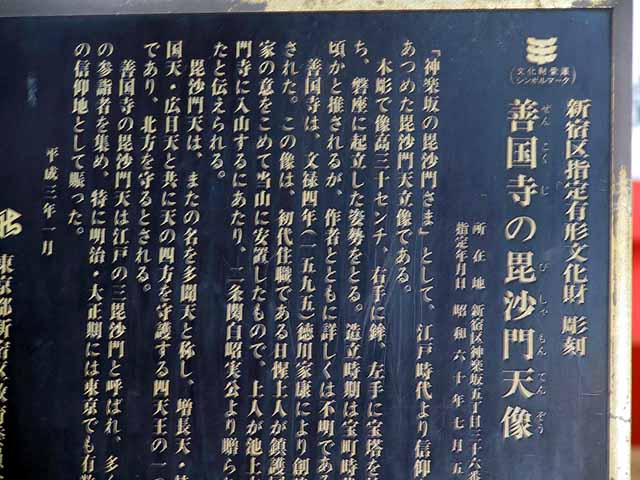 文化財愛護
シンボルマーク
新宿区指定有形文化財 彫刻
善国寺の毘沙門天像
ぜんこくじ
びしゃもんてんぞう
所在地 新宿区神楽坂五丁目三十六番
指定年月日 昭和六十年七月五
「神楽坂の毘沙門さま」として、江戸時代より信仰
あつめた毘沙門天立像である。
木彫で像高三十センチ、右手に鉾、左手に宝塔を
ち、磐座に起立した姿勢をとる。造立時期は室町時
頃かと推されるが、作者とともに詳しくは不明であ
善国寺は、文禄四年(一五九五)徳川家康により創
された。この像は、初代住職である日惺上人が鎮護
家の意をこめて当山に安置したもので、上人が池上
門寺に入山するにあたり、二条関白昭実公より贈ら
たと伝えられる。
毘沙門天は、またの名を多聞天と称し、増長天・
国天・広目天と共に天の四方を守護する四天王の一
であり、北方を守るとされる。
善国寺の毘沙門天は江戸の三毘沙門と呼ばれ、多
の参詣者を集め、特に明治・大正期には東京でも有
の信仰地として賑った。
平成三年一月
東京都新宿区教育委員